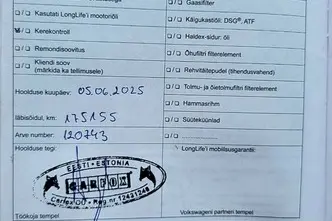 □/□ Gaasifilter
□/□ Kasutati LongLife'i mootoriõli
□/□ Käigukastiõli: DSG®, ATF
☑/□ Kerekontroll
□/□ Haldex-sidur: õli
□/□ Remondisoovitus
□/□ Õhufiltri filterelement
□/□ Kliendi soov
(märkida ka tellimusele)
□/□ Rehvitäitepudel (tihendusvahend)
□/□ Tolmu- ja õietolmufiltri filterelement
Hoolduse kuupäev: 05.06.2025
□/□ Hammasrihm
läbisõidul, km 175155
□/□ Süüteküünlad
Arve number: 120743
□/□
Hoolduse tegi:
LongLife'i mobiilsusgarantii:
EESTI - ESTONIA
CARFOX
Carfox OÜ • Reg nr 12431249
Töökoja tempel
Volkswageni partneri tempel